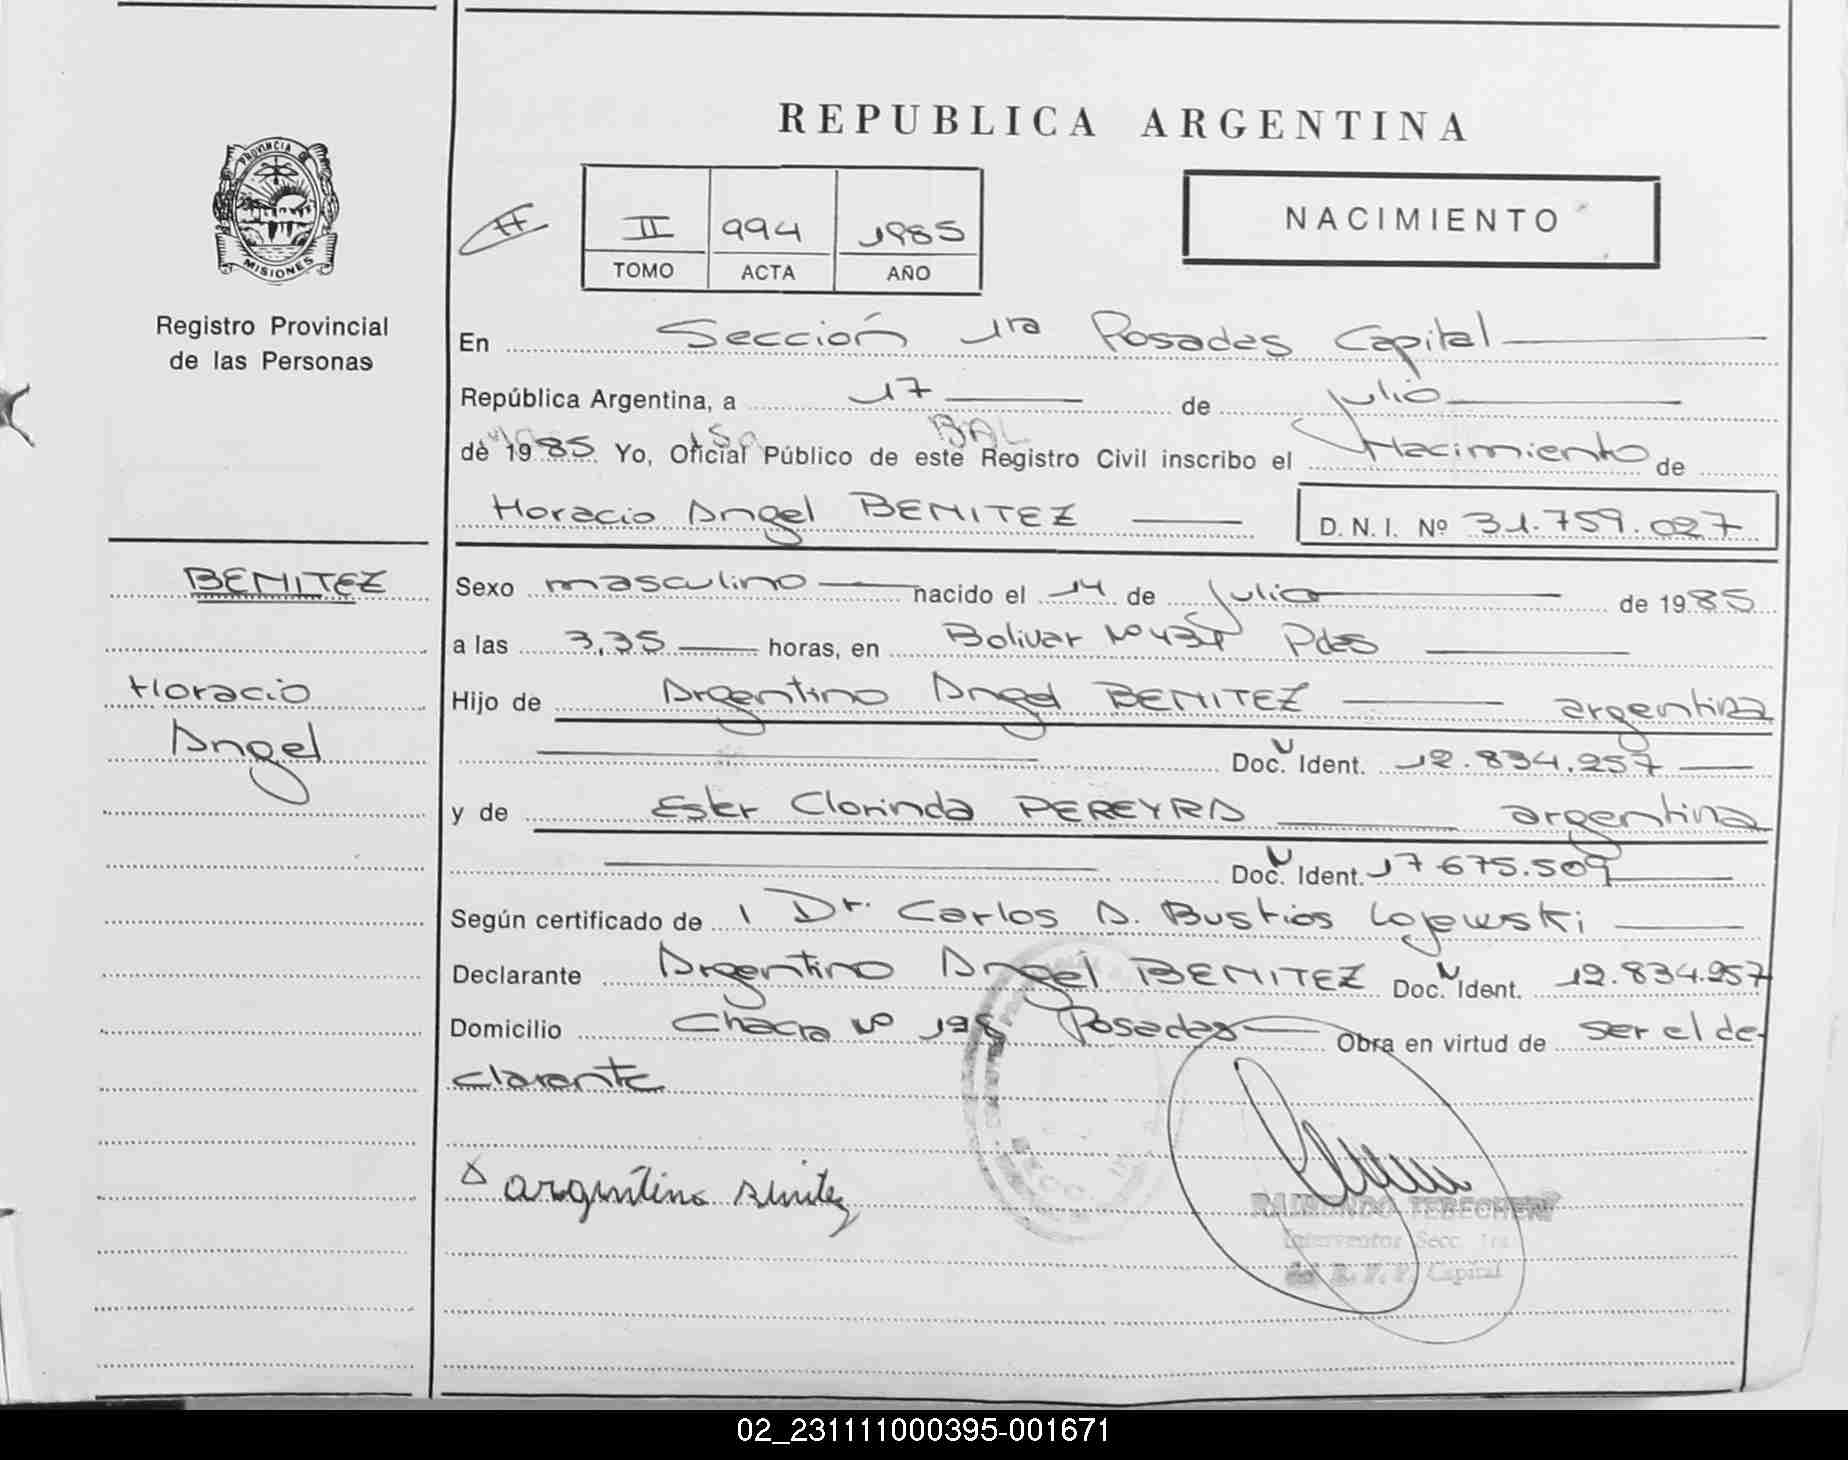 REPUBLICA ARGENTINA
PROVINCIA DE
MISIONES
Registro Provincial
de las Personas
II 994 1985
TOMO ACTA AÑO
NACIMIENTO
En Sección 1ra Posadas Capital
República Argentina, a 17 de julio
de 1985. Yo, Oficial Público de este Registro Civil inscribo el Nacimiento de
Horacio Angel BENITEZ D. N. I. Nº 31.759.027
BENITEZ
Horacio
Angel
Sexo masculino nacido el 14 de julio de 1985
a las 3,35 horas, en Bolivar Nº Pdas
Hijo de Argentino Angel BENITEZ argentina
Doc. Ident. 12.834.257
y de Ester Clorinda PEREYRA argentina
Doc. Ident. 17 675.509
Según certificado de Dr. Carlos A. Bustios Lojewski
Declarante Argentino Angel BENITEZ Doc. Ident. 12.834.257
Domicilio Chacra Nº Posadas Obra en virtud de ser el de-
clarante
argentino Benitez
RAIMUNDO
Interventor Secc. 1ra
del R. P. P. Capital
02_231111000395-001671